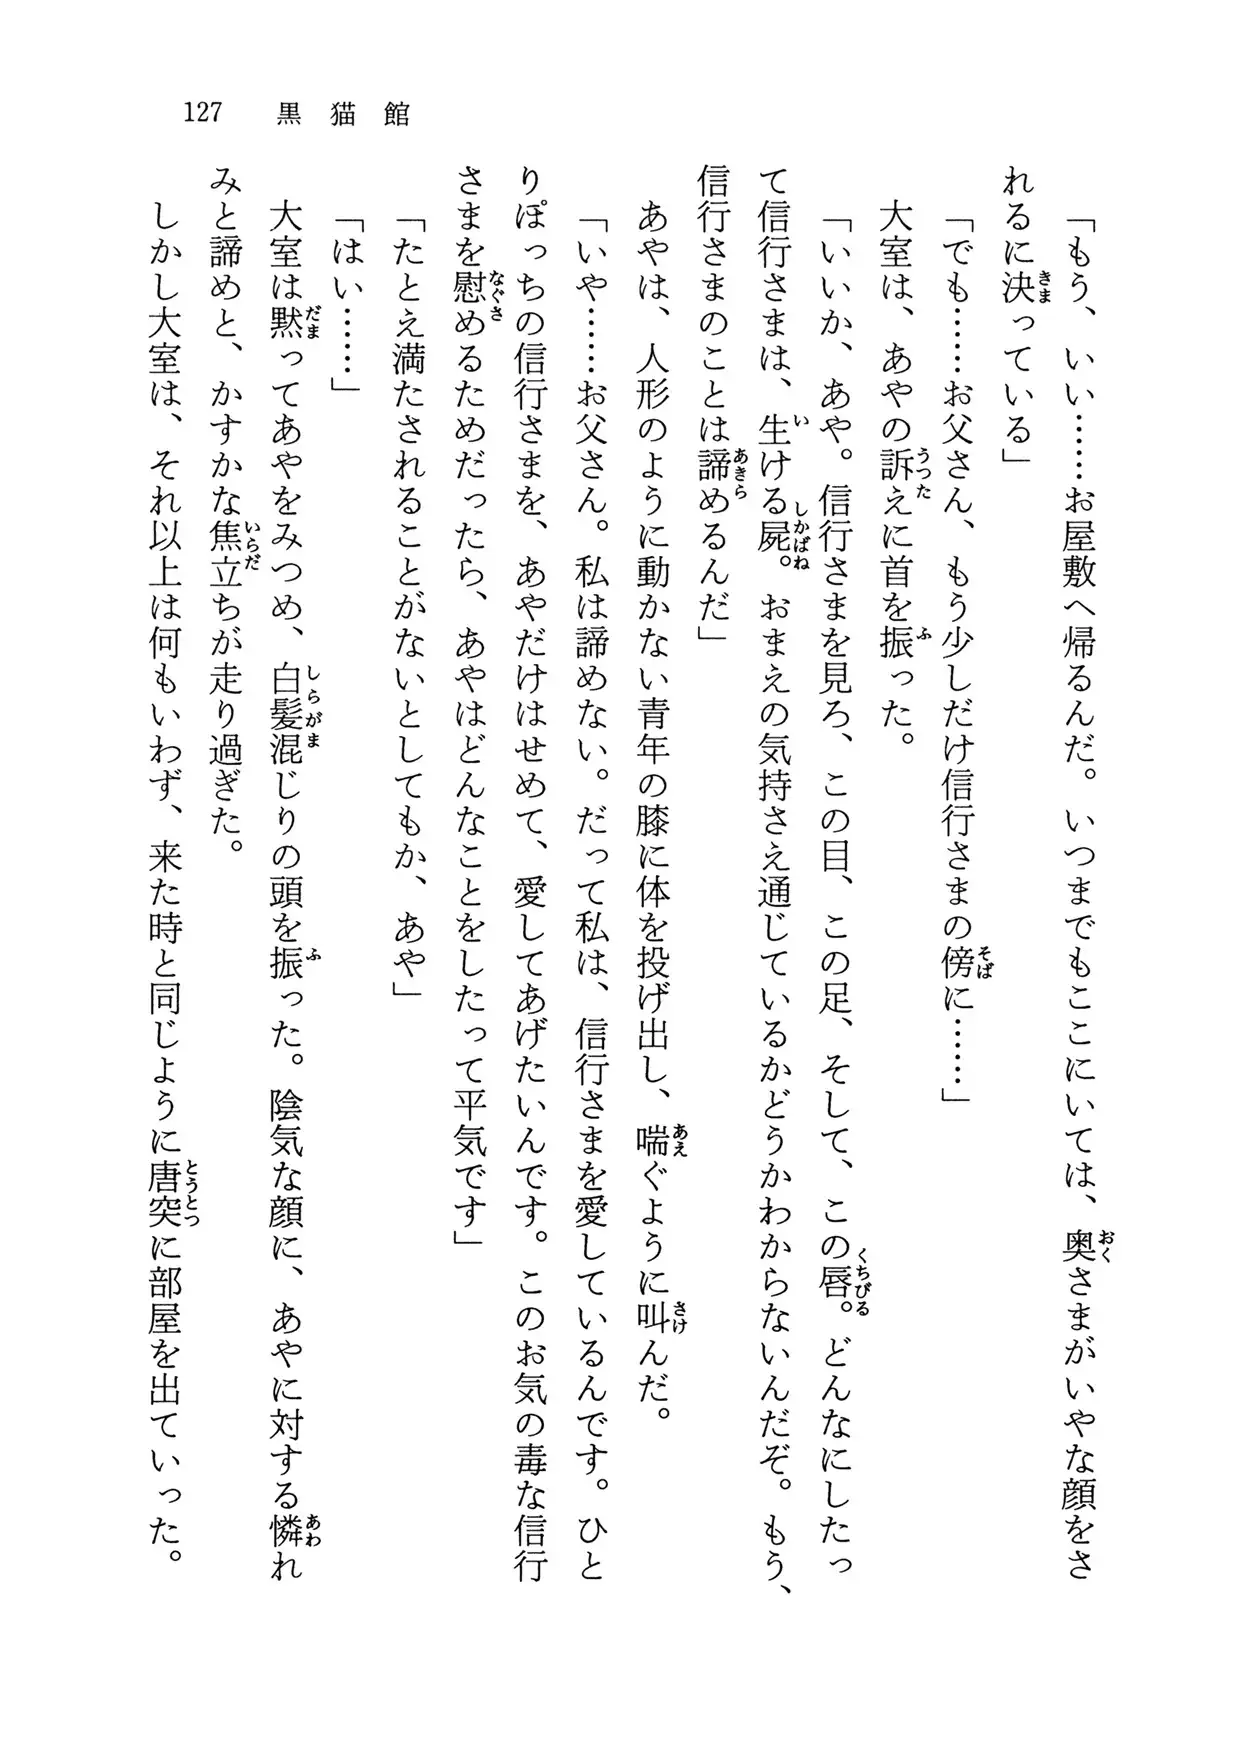 127　黒猫館
「もう、いい……お屋敷へ帰るんだ。いつまでもここにいては、奥さまがいやな顔をさ
れるに決っている」
「でも……お父さん、もう少しだけ信行さまの傍に……」
大室は、あやの訴えに首を振った。
「いいか、あや。信行さまを見ろ、この目、この足、そして、この唇。どんなにしたっ
て信行さまは、生ける屍。おまえの気持さえ通じているかどうかわからないんだぞ。もう、
信行さまのことは諦めるんだ」
あやは、人形のように動かない青年の膝に体を投げ出し、喘ぐように叫んだ。
「いや……お父さん。私は諦めない。だって私は、信行さまを愛しているんです。ひと
りぽっちの信行さまを、あやだけはせめて、愛してあげたいんです。このお気の毒な信行
さまを慰めるためだったら、あやはどんなことをしたって平気です」
「たとえ満たされることがないとしてもか、あや」
「はい……」
大室は黙ってあやをみつめ、白髪混じりの頭を振った。陰気な顔に、あやに対する憐れ
みと諦めと、かすかな焦立ちが走り過ぎた。
しかし大室は、それ以上は何もいわず、来た時と同じように唐突に部屋を出ていった。